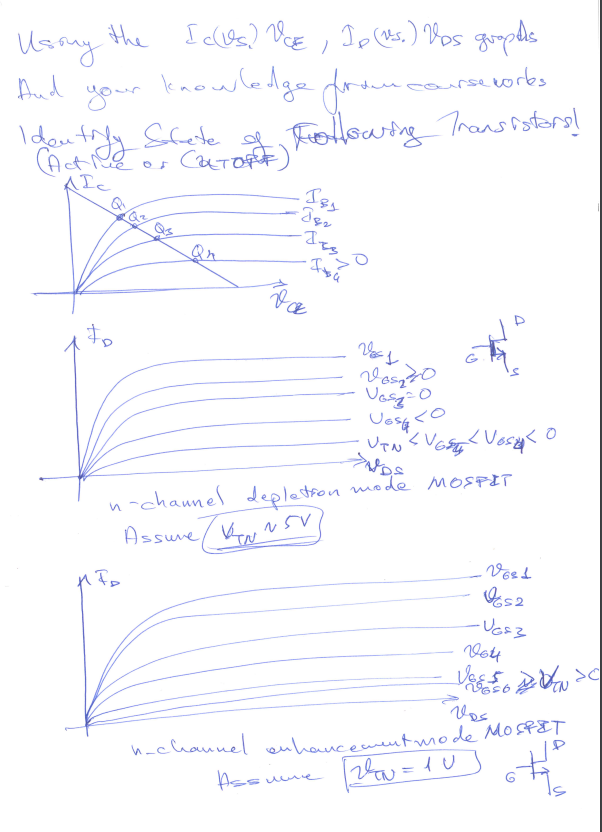 Using the Ic(vs.) VCE, ID(vs.) VDS graphs
And your knowledge from courseworks
Identify State of Following Transistors!
(Active or CUTOFF)
Ic
Q1
Q2
Q3
Q4
IB1
IB2
IB3
IB4 > 0
VCE
ID
VGS1
VGS2 ≥ 0
VGS3 = 0
VGS4 < 0
VTN < VGS5 < VGS4 < 0
VDS
D
G
S
n-channel depletion mode MOSFET
Assume VTN ~ 5V
ID
VGS1
VGS2
VGS3
VG4
VGS5
VGS6 ≥ VTN > 0
VDS
n-channel enhancement mode MOSFET
Assume VTN = 1 V
D
G
S